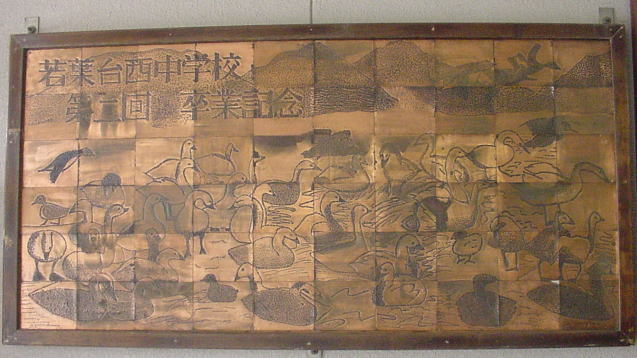 若葉台西中学校
第三回 卒業記念